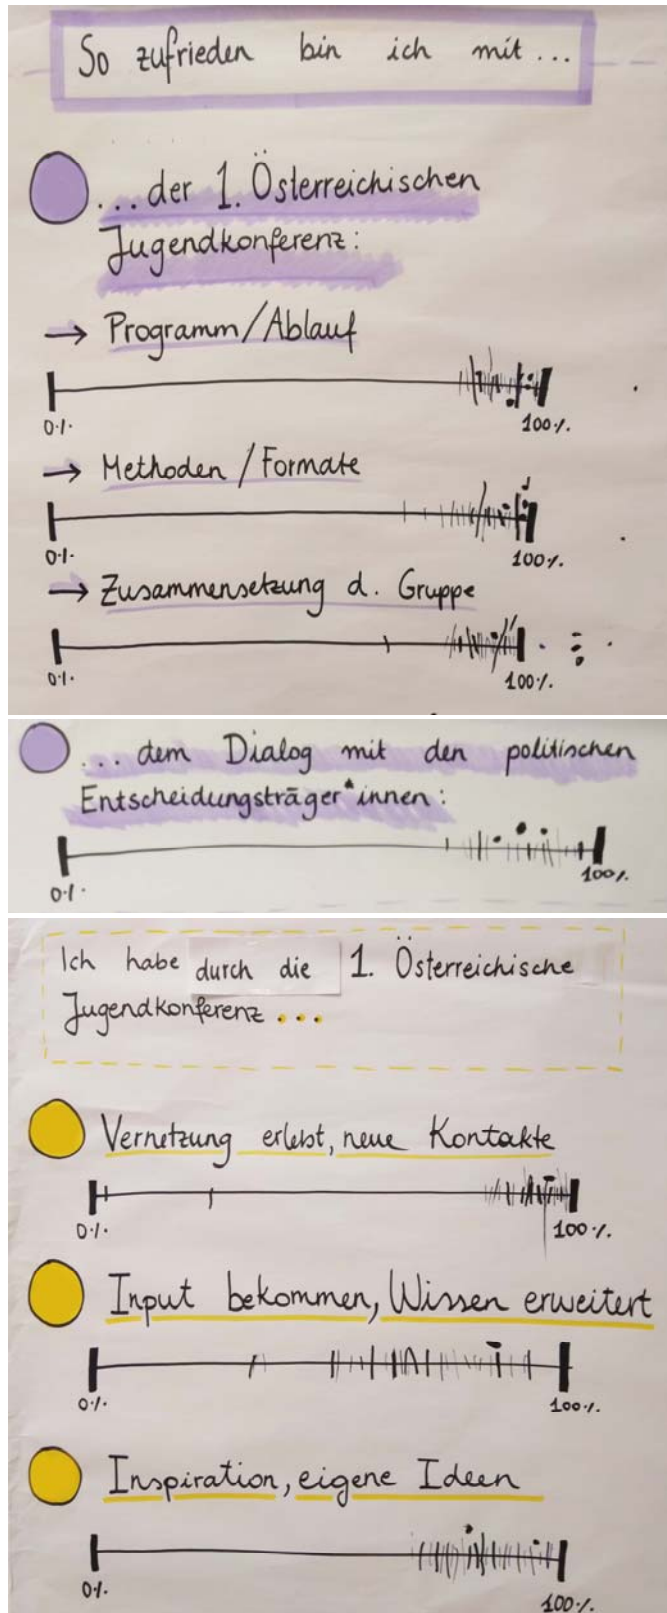 So zufrieden bin ich mit...
...der 1. Österreichischen
Jugendkonferenz:
→ Programm/Ablauf
0% 100%
→ Methoden/Formate
0% 100%
→ Zusammensetzung d. Gruppe
0% 100%
... dem Dialog mit den politischen
Entscheidungsträger*innen:
0% 100%
Ich habe durch die 1. Österreichische
Jugendkonferenz ...
Vernetzung erlebt, neue Kontakte
0% 100%
Input bekommen, Wissen erweitert
0% 100%
Inspiration, eigene Ideen
0% 100%